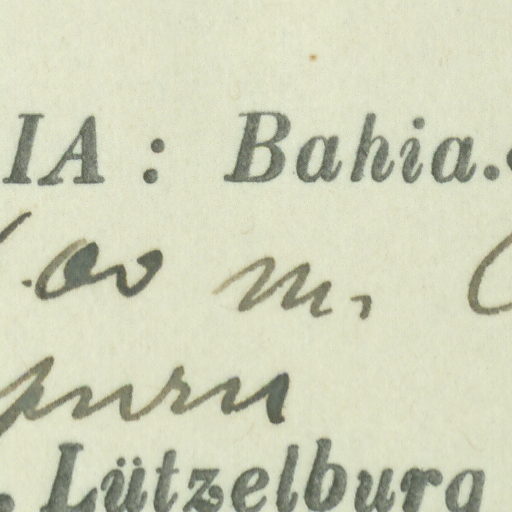 IA : Bahia.
00 m.
puru
. Lützelburg